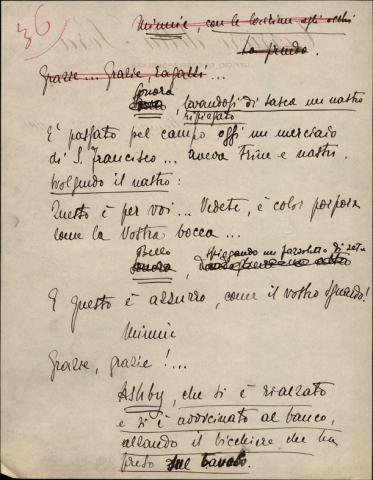 36
Minnie, con le lacrime agli occhi
la prendo.
Grazie... Grazie ragazzi...
Sonora
levandosi di tasca un nastro
ripiegato
È passato pel campo oggi un merciaio
di S. Francisco... aveva trine e nastri.
Svolgendo il nastro:
Questo è per voi... Vedete, è color porpora
come la vostra bocca...
Bello
Sonora, spiegando un fazzoletto di seta
E questo è azzurro, come il vostro sguardo!
Minnie
Grazie, grazie!...
Ashby, che si è rialzato
e si è avvicinato al banco,
alzando il bicchiere che ha
preso sul tavolo.